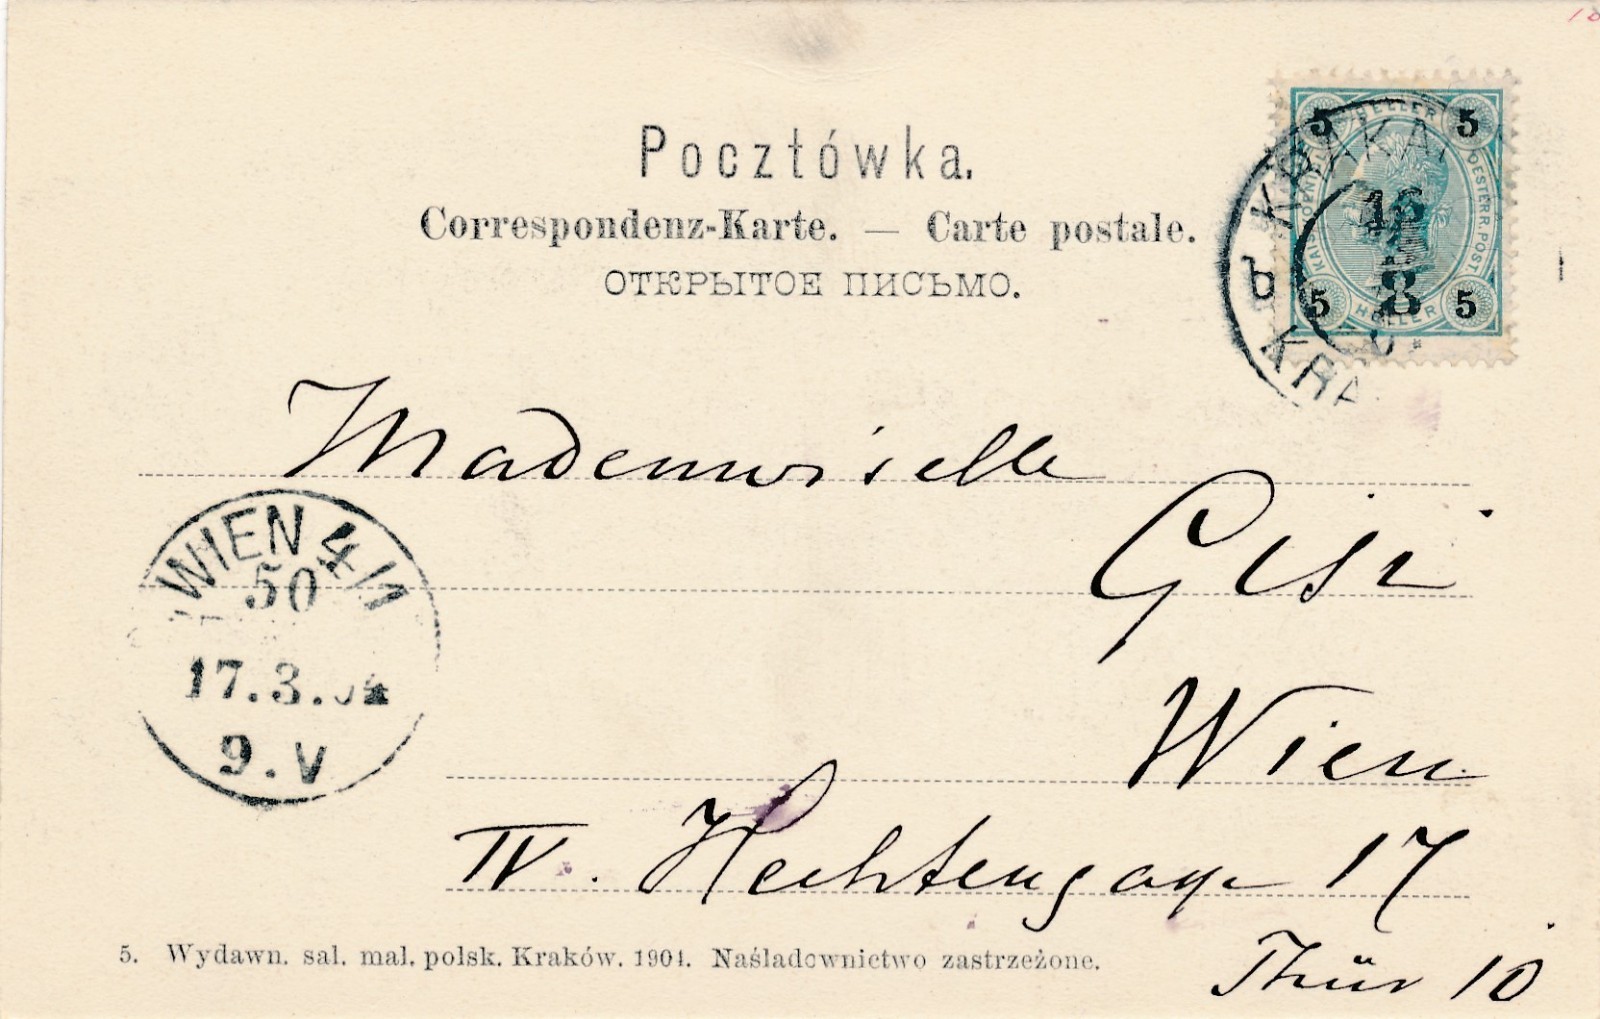 Pocztówka.
Correspondenz-Karte. — Carte postale.
ОТКРЫТОЕ ПИСЬМО.
5 HELLER 5
KAIS. KOENIGL. OESTERR. POST.
5 HELLER 5
KRAKA
16
3
b
KRA
Mademoiselle
Gisi
WIEN 4/1
50
17.3.04
9.V
Wien
IV. Hechtengasse 17
Thür 10
5. Wydawn. sal. mal. polsk. Kraków. 1901. Naśladownictwo zastrzeżone.